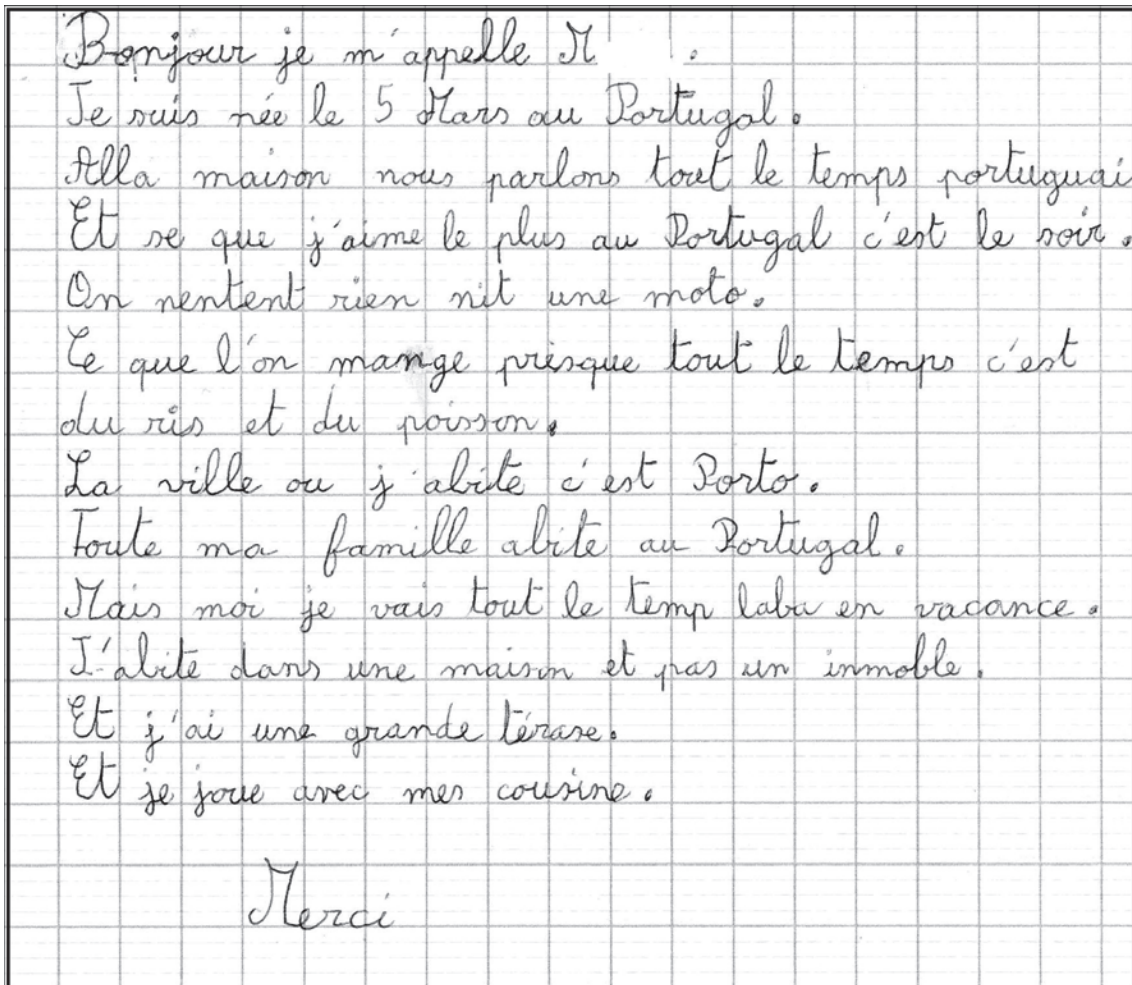 Bonjour je m'appelle M .
Je suis née le 5 Mars au Portugal.
Alla maison nous parlons tout le temps portuguai
Et se que j'aime le plus au Portugal c'est le soir.
On nentent rien nit une moto.
Ce que l'on mange presque tout le temps c'est
du ris et du poisson.
La ville ou j'abite c'est Porto.
Toute ma famille abite au Portugal.
Mais moi je vais tout le temp laba en vacance.
J'abite dans une maison et pas un inmoble.
Et j'ai une grande térase.
Et je joue avec mes cousine.
Merci